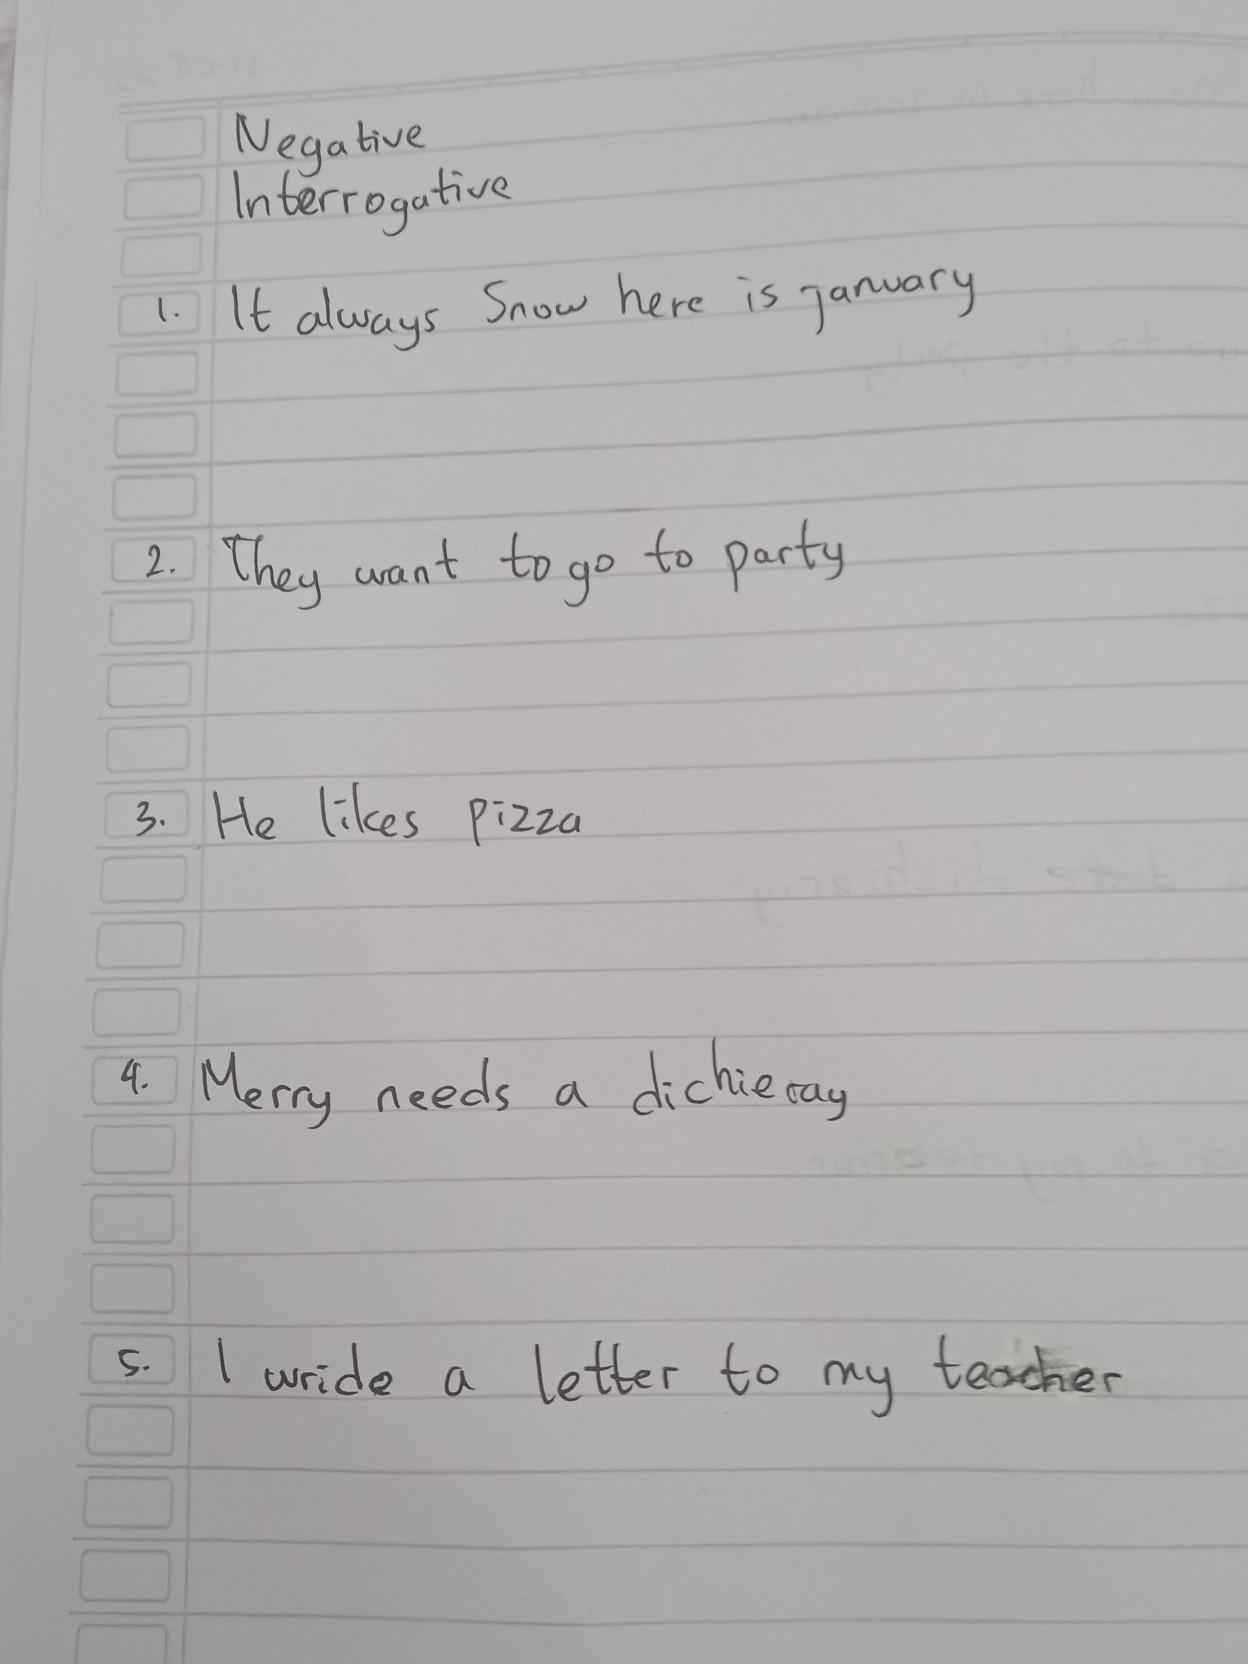 Negative
Interrogative
1. It always Snow here is january
2. They want to go to party
3. He likes pizza
4. Merry needs a dichieray
5. I wride a letter to my teacher